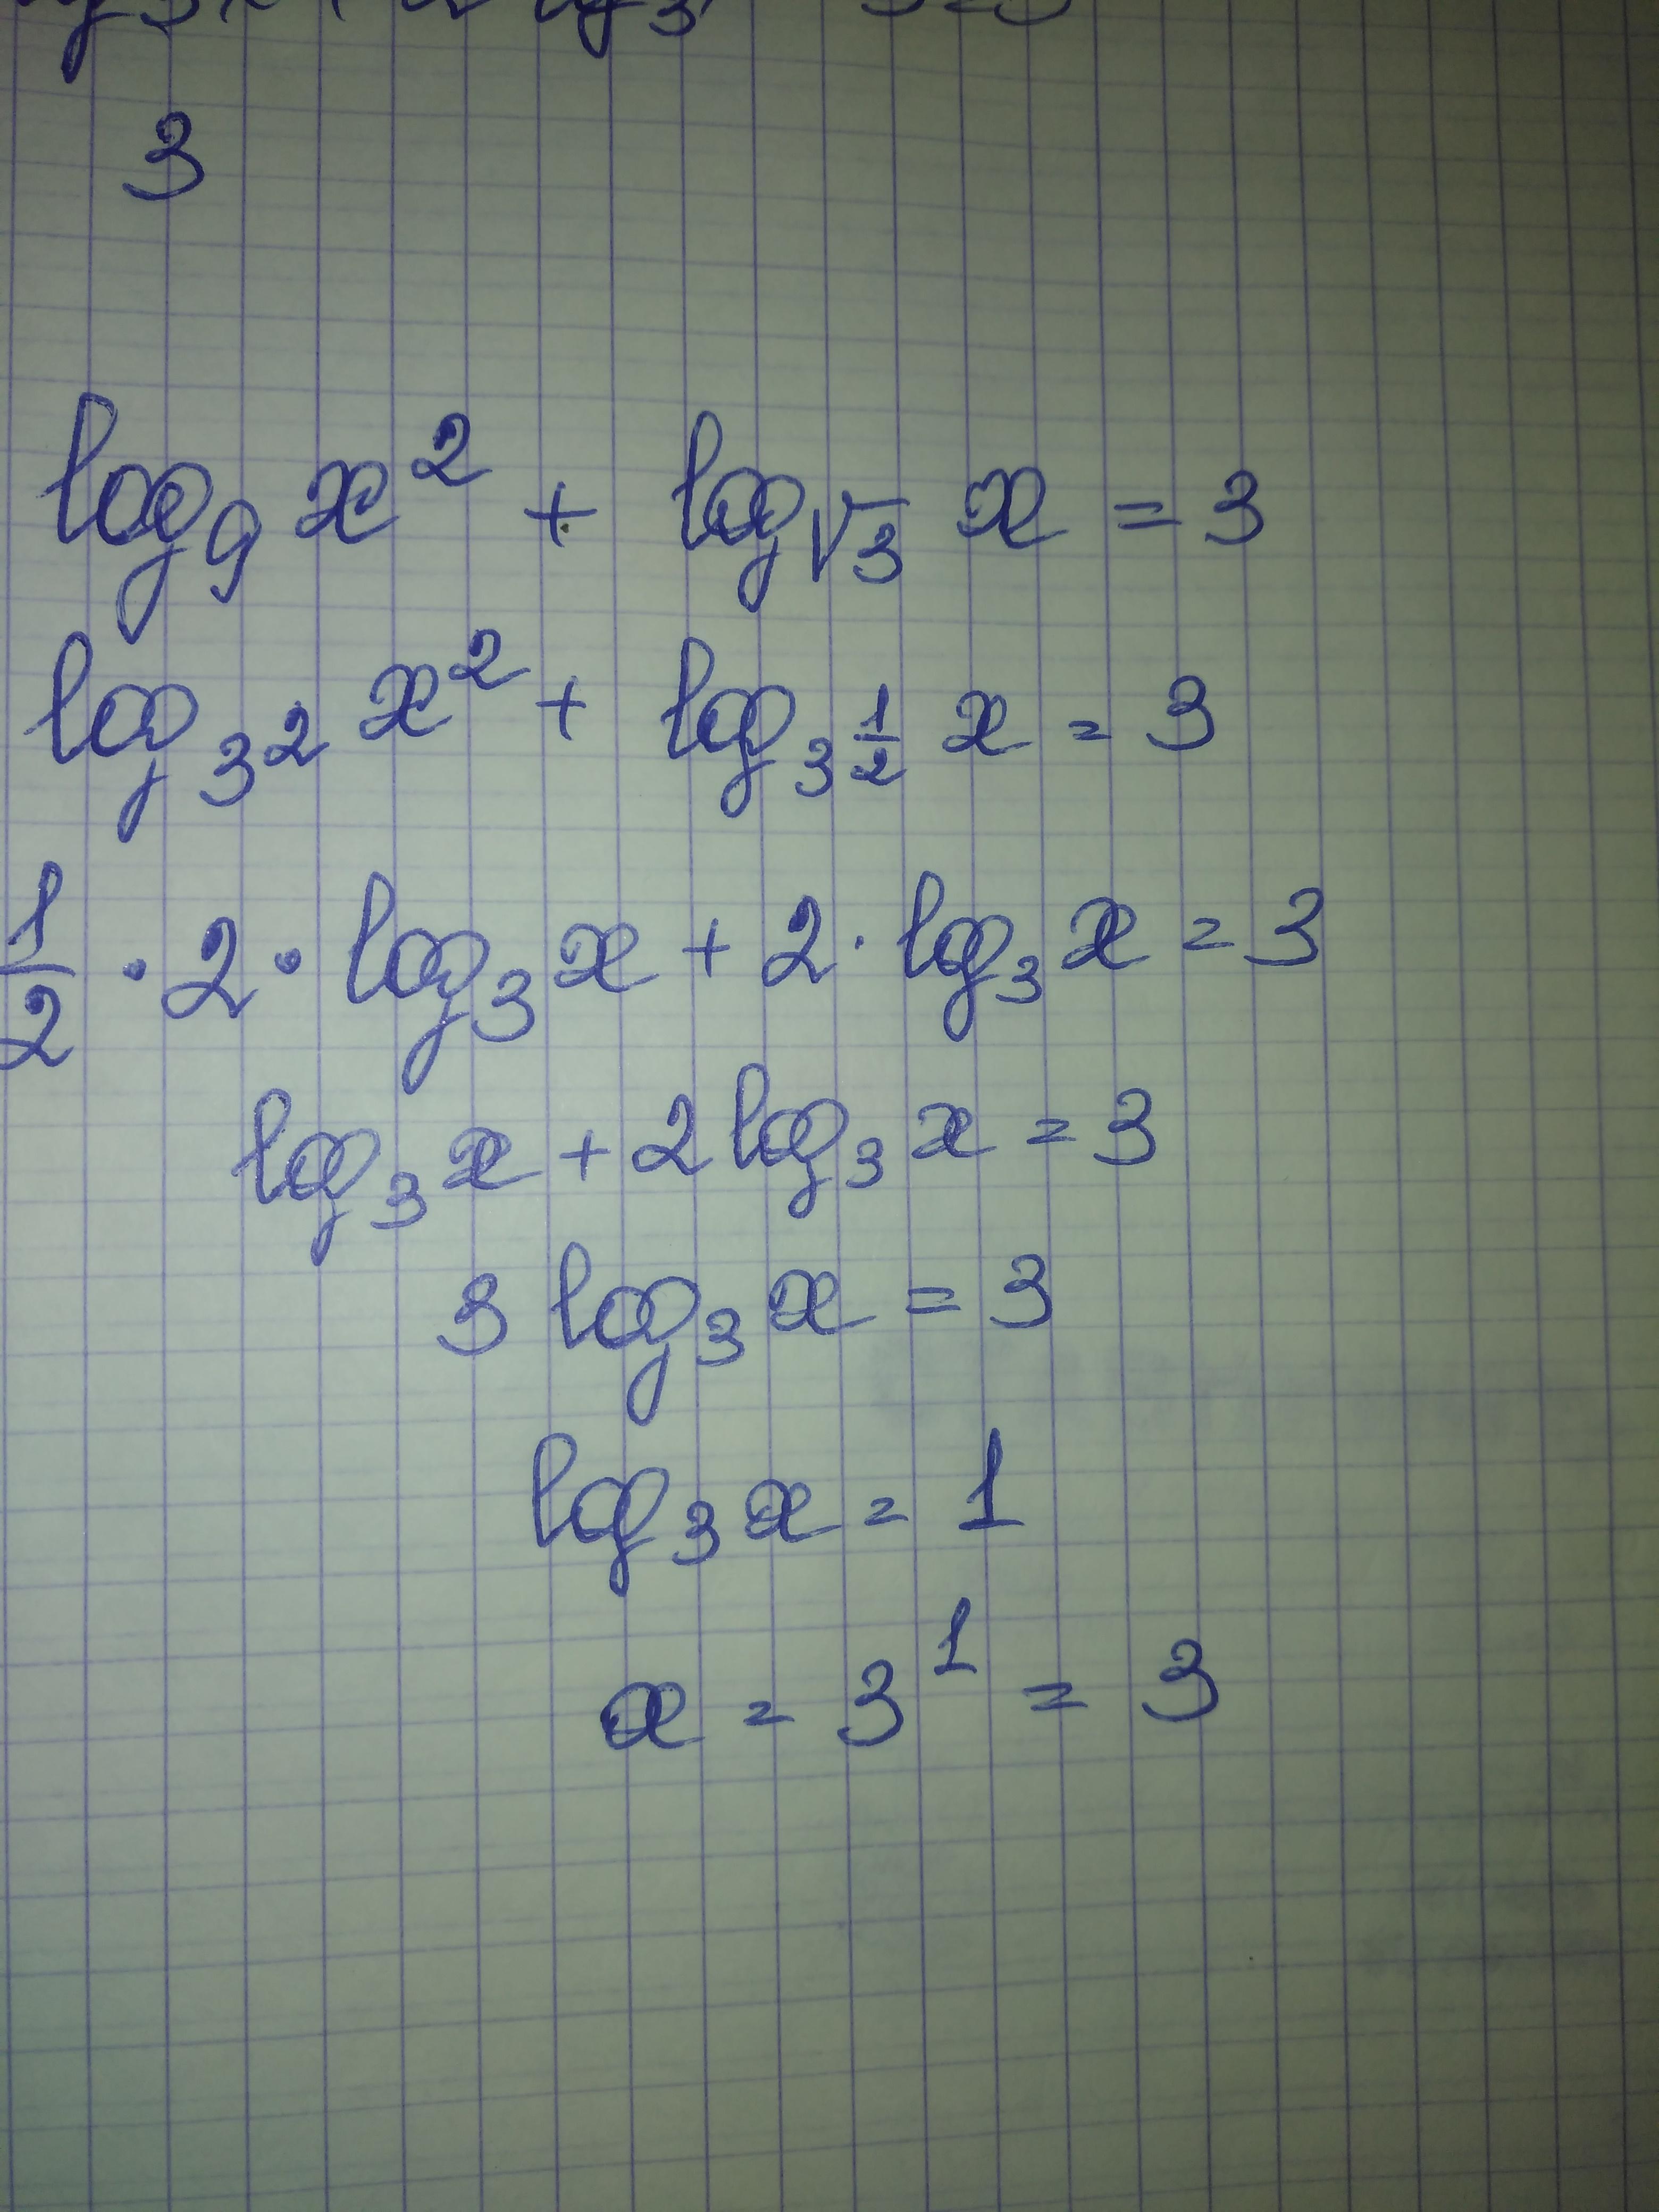 3
log₉ x² + log_√3 x = 3
log_3² x² + log_3^½ x = 3
½ · 2 · log₃ x + 2 · log₃ x = 3
log₃ x + 2 log₃ x = 3
3 log₃ x = 3
log₃ x = 1
x = 3¹ = 3